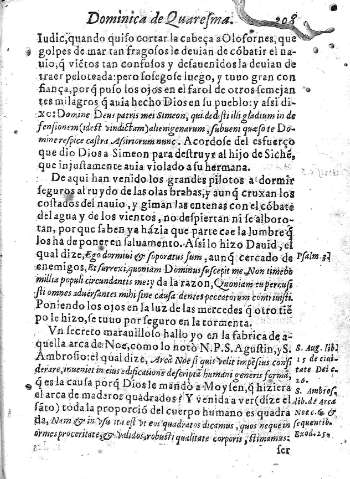 Dominica de Quaresma. 208
Iudic, quando quiso cortar la cabeça a Olofornes, que
golpes de mar tan fragosos le deuian de cõbatir el na-
uio, q̃ viẽtos tan confusos y desauenidos la deuian de
traer peloteada: pero sosegose luego, y tuuo gran con
fiança, porq̃ puso los ojos en el farol de otros semejan
tes milagros q̃ auia hecho Dios en su pueblo: y assi di-
xo: Domine Deus patris mei Simeon, qui dedisti illi gladium in de
fensionem (idest vindictam) alienigenarum, subueni quæso te Do-
mine respice castra Assiriorum nunc. Acordose del esfuerço
que dio Dios a Simeon para destruyr al hijo de Sichẽ,
que injustamente auia violado a su hermana.
De aqui han venido los grandes pilotos a dormir
seguros al ruydo de las olas brabas, y aunq̃ cruxan los
costados del nauio, y giman las entenas con el cõbate
del agua y de los vientos, no despiertan ni se alboro-
tan, por que saben ya házia que parte cae la lumbre q̃
los ha de poner en saluamento. Assi lo hizo Dauid, el
qual dize, Ego dormiui & soporatus sum, aunq̃ cercado de
enemigos, Et surrexi, quoniam Dominus suscepit me, Non timebo
millia populi circundantis me: y da la razon, Quoniam tu percussi
sti omnes aduersantes mihi sine causa dentes peccatorum contriuisti.
Poniendo los ojos en la luz de las mercedes q̃ otro tiẽ
po le hizo, se tuuo por seguro en la tormenta.
Vn secreto marauilloso hallo yo en la fabrica de a-
quella arca de Noe, como lo notò N.P.S. Agustin, y S.
Ambrosio: el qual dize, Arcã Noe si quis velit impẽsius consi
derare, inueniet in eius ædificatione descriptã humani generis formã,
q̃ es la causa porq̃ Dios le mandò a Moysen, q̃ hiziera
el arca de maderos quadrados? Y venida a ver (dize el
sãto) toda la proporcion del cuerpo humano es quadra
da, Nam & in vsu ita est vt eos quadratos dicamus, quos neque in
ormes proceritates, & validos, robusti qualitate corporis, æstimamus:
ser
Psalm. 3.
S. Aug. lib.
15 de ciui-
tate Dei c.
26.
S. Ambros.
lib. de Arca
Noe c. 6. &
sequentib.